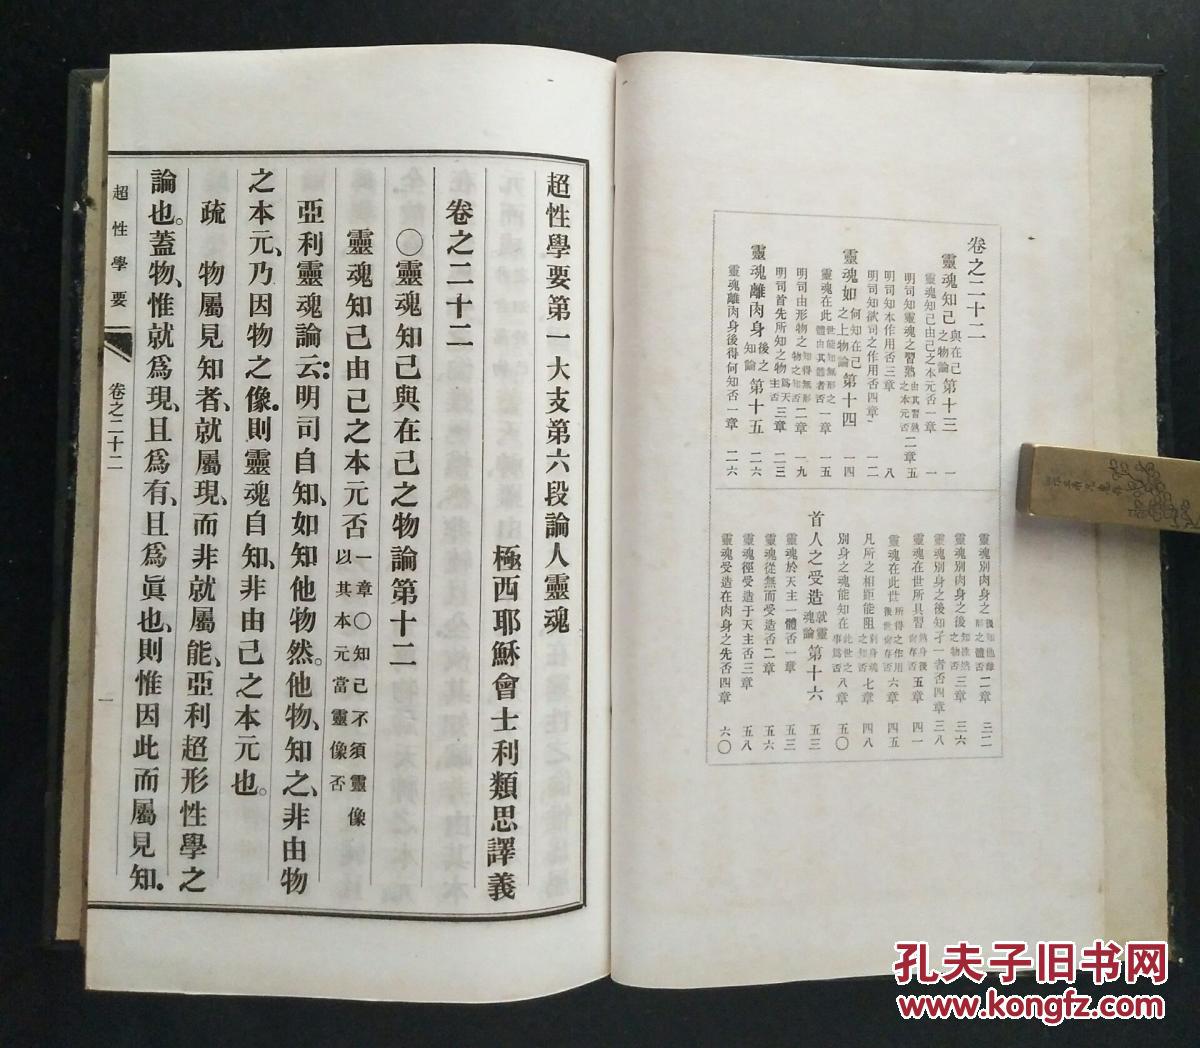 卷之二十二
靈魂知己與在己之物論第十三 一
靈魂知己由己之本元否一章 一
明司知靈魂之習熟由其習熟之本元否二章 五
明司知本作用否三章 八
明司知欲司之作用否四章 一二
靈魂如何知在己之上物論第十四 一四
靈魂在此世能知無形之體由其體者否一章 一五
明司由形物之知得無形之物之知否二章 一九
明司首先所知之物為天主否三章 二三
靈魂離肉身後之知論第十五 二六
靈魂離肉身後得何知否一章 二六
靈魂別肉身之後知他離形之體否二章 三二
靈魂別肉身之後知性然之物否三章 三六
靈魂別身之後知孑一者否四章 三八
靈魂在世所具習熟身後尚存否五章 四一
靈魂在此世所得之作用後世尚存否六章 四五
凡所之相距能阻別身魂之知否七章 四八
別身之魂能知在此世之事爲否八章 五〇
首人之受造就靈魂論第十六 五三
靈魂於天主一體否一章 五三
靈魂從無而受造否二章 五六
靈魂徑受造于天主否三章 五八
靈魂受造在肉身之先否四章 六〇
超性學要第一大支第六段論人靈魂
極西耶穌會士利類思譯義
卷之二十二
〇靈魂知己與在己之物論第十二
靈魂知己由己之本元否一章〇知己不須靈像以其本元當靈像否
亞利靈魂論云：明司自知、如知他物然。他物、知之、非由物
之本元、乃因物之像。則靈魂自知、非由己之本元也。
疏　物屬見知者、就屬現、而非就屬能、亞利超形性學之
論也。蓋物、惟就爲現、且爲有、且爲眞也、則惟因此而屬見知。
超性學要
卷之二十二
一
孔夫子旧书网
www.kongfz.com